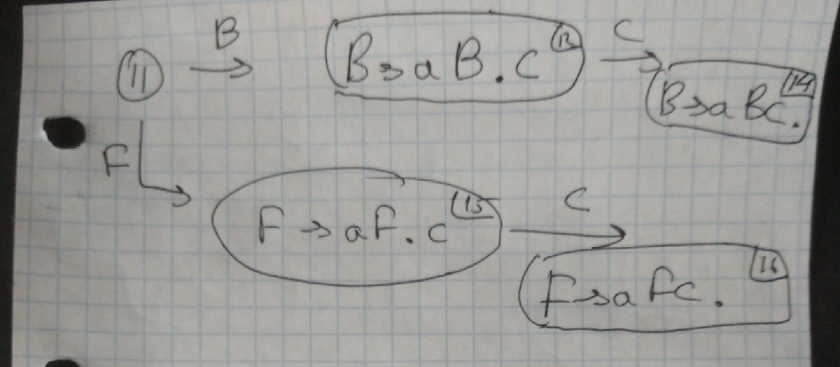 11 B B→aB.c 13 C B→aBc. 14
F F→aF.c 15 C F→aFc. 16